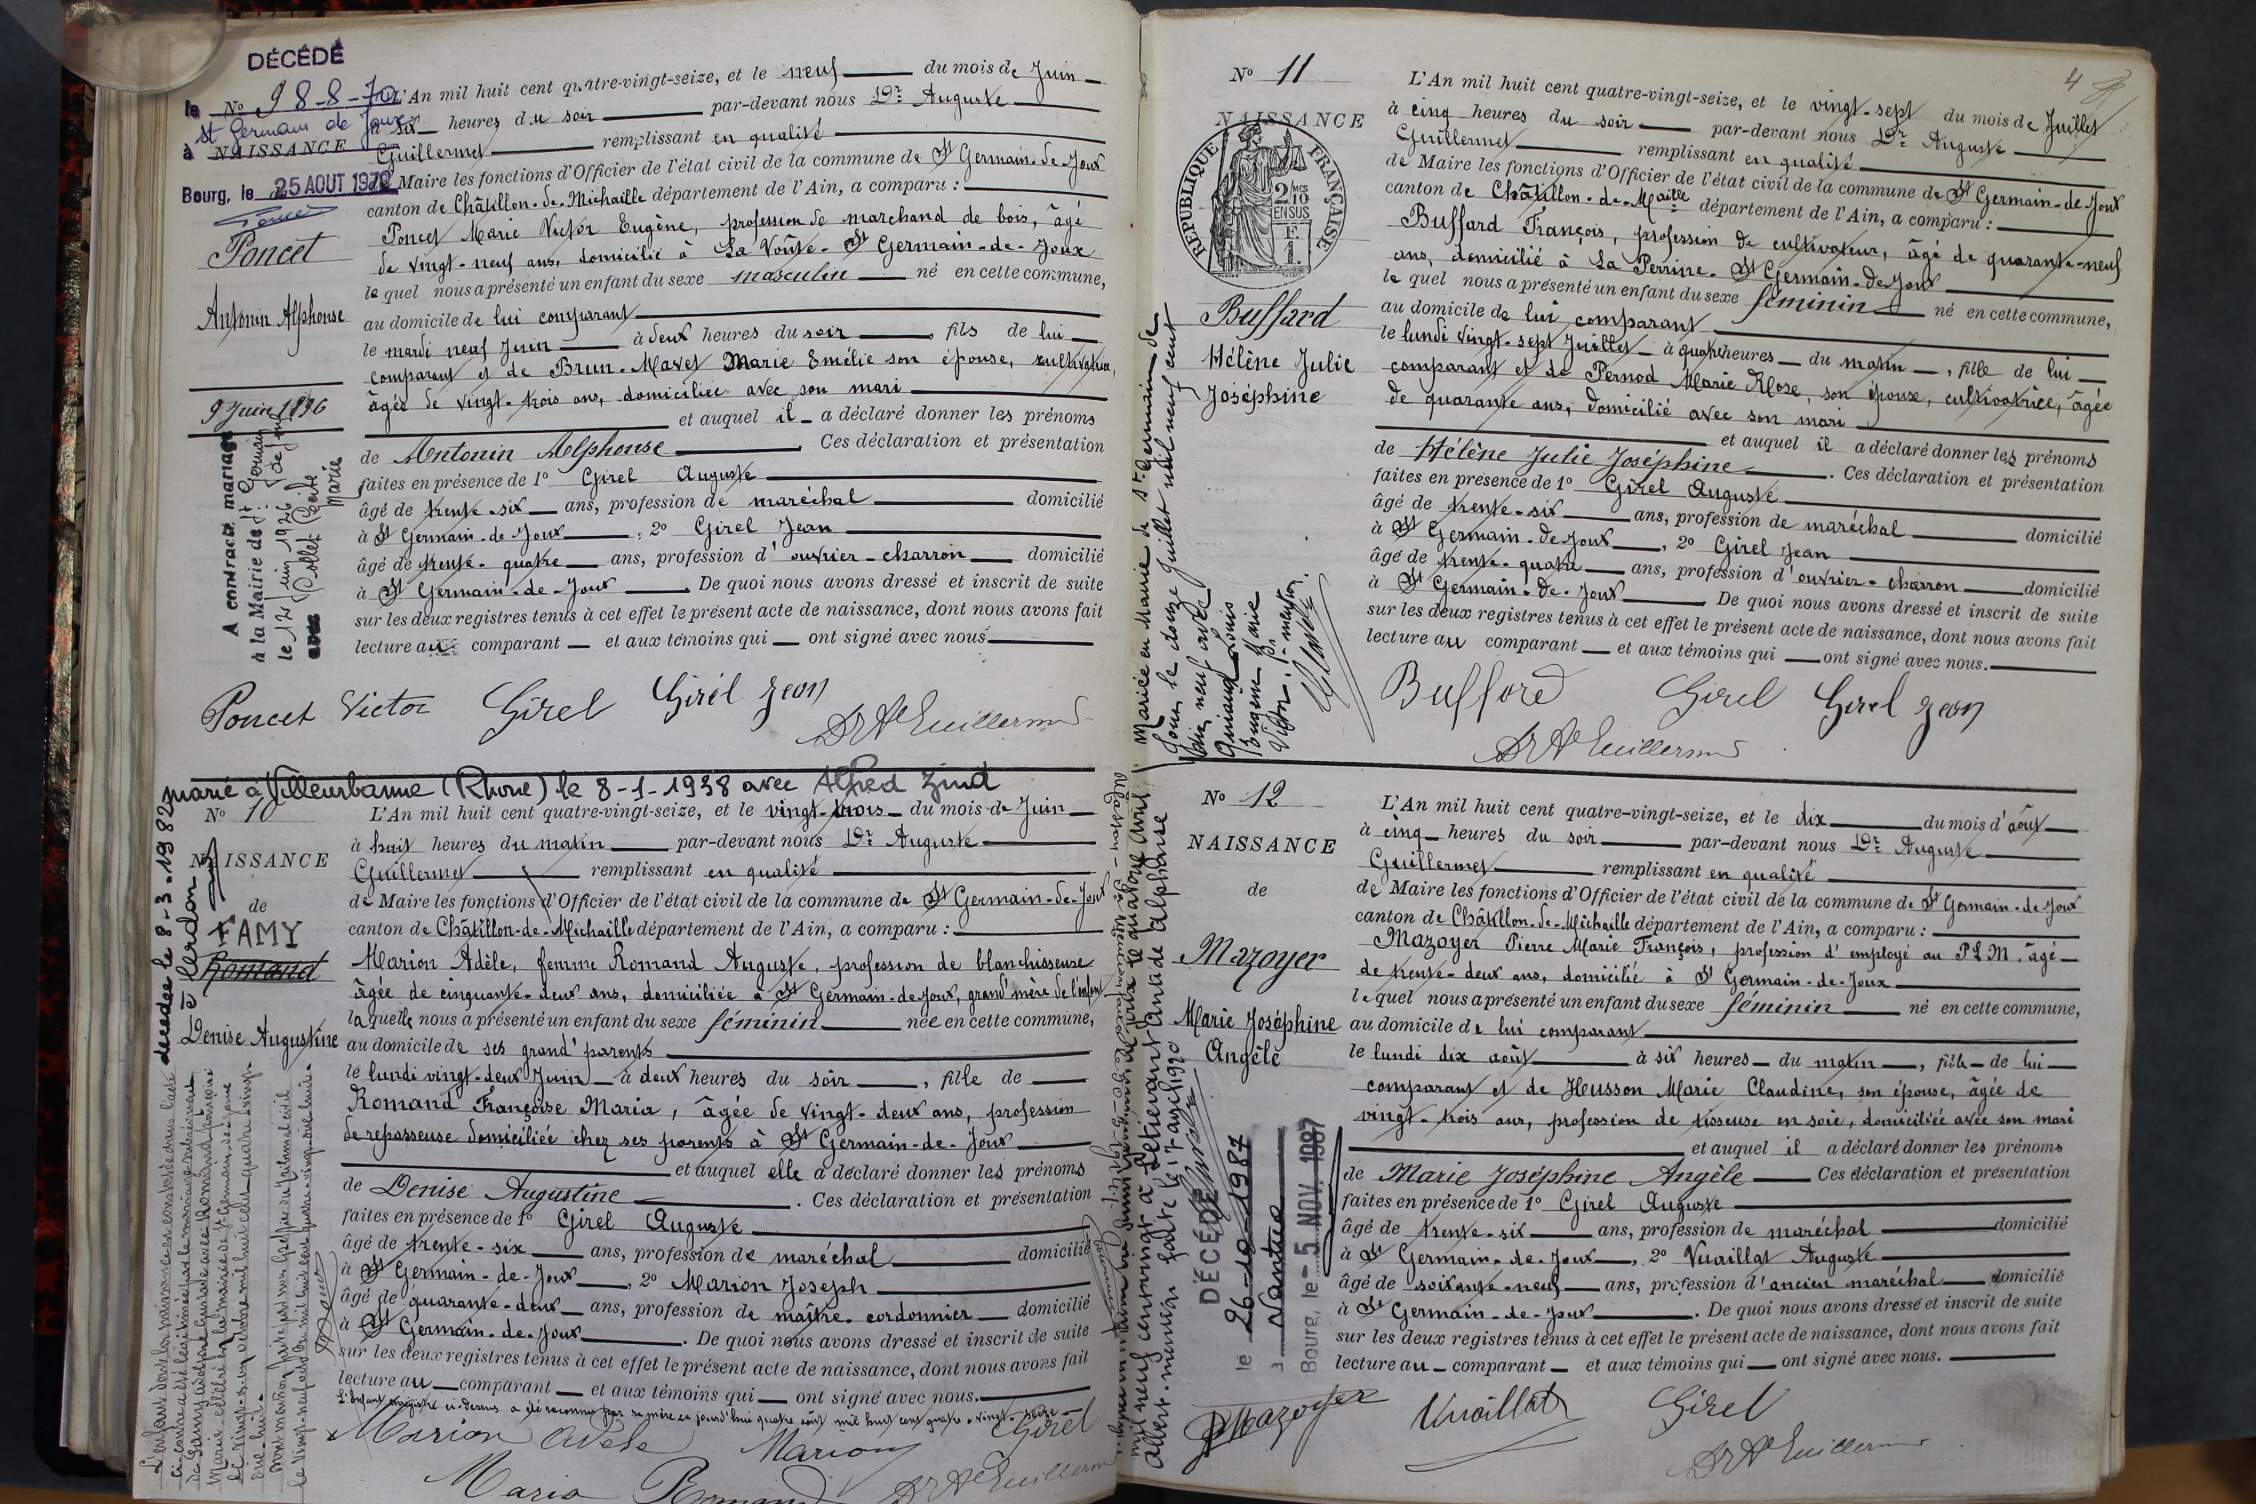 DÉCÉDÉ
le 8-8-70
N° 9
st Germain de Joux
à NAISSANCE
Bourg, le 25 AOUT 1970
Poncet
Antonin Alphonse
9 Juin 1896
A contracté mariage
à la Mairie de St Germain de Joux
le 12 Juin 1926
avec
Marie
L'An mil huit cent quatre-vingt-seize, et le neuf du mois de Juin
à six heures du soir par-devant nous Dr Auguste
Guillermet remplissant en qualité
de Maire les fonctions d'Officier de l'état civil de la commune de St Germain-de-Joux
canton de Châtillon-de-Michaille département de l'Ain, a comparu :
Poncet Marie Victor Eugène, profession de marchand de bois, âgé
de vingt-neuf ans, domicilié à La Voûte-St Germain-de-Joux
lequel nous a présenté un enfant du sexe masculin né en cette commune,
au domicile de lui comparant
le mardi neuf Juin à deux heures du soir, fils de lui
comparant et de Brun-Mavet Marie Emélie son épouse, cultivatrice,
âgée de vingt-trois ans, domiciliée avec son mari
et auquel il a déclaré donner les prénoms
de Antonin Alphonse. Ces déclaration et présentation
faites en présence de 1° Girel Auguste
âgé de trente-six ans, profession de maréchal domicilié
à St Germain-de-Joux, 2° Girel Jean
âgé de trente-quatre ans, profession d'ouvrier-charron domicilié
à St Germain-de-Joux. De quoi nous avons dressé et inscrit de suite
sur les deux registres tenus à cet effet le présent acte de naissance, dont nous avons fait
lecture au comparant et aux témoins qui ont signé avec nous
Poncet Victor Girel Girel Jean
Dr A Guillermet
marié à Villeurbanne (Rhone) le 8-1-1938 avec Alfred Zind
décédée le 8-3-1982
à Cerdon
N° 10
NAISSANCE
de
FAMY
Romand
Denise Augustine
L'An mil huit cent quatre-vingt-seize, et le vingt-trois du mois de Juin
à huit heures du matin par-devant nous Dr Auguste
Guillermet remplissant en qualité
de Maire les fonctions d'Officier de l'état civil de la commune de St Germain-de-Joux
canton de Châtillon-de-Michaille département de l'Ain, a comparu :
Marion Adèle, femme Romand Auguste, profession de blanchisseuse
âgée de cinquante-deux ans, domiciliée à St Germain-de-Joux, grand'mère de l'enfant
laquelle nous a présenté un enfant du sexe féminin née en cette commune,
au domicile de ses grand'parents
le lundi vingt-deux Juin à deux heures du soir, fille de
Romand Françoise Maria, âgée de vingt-deux ans, profession
de repasseuse domiciliée chez ses parents à St Germain-de-Joux
et auquel elle a déclaré donner les prénoms
de Denise Augustine. Ces déclaration et présentation
faites en présence de 1° Girel Auguste
âgé de trente-six ans, profession de maréchal domicilié
à St Germain-de-Joux, 2° Marion Joseph
âgé de quarante-deux ans, profession de maître-cordonnier domicilié
à St Germain-de-Joux. De quoi nous avons dressé et inscrit de suite
sur les deux registres tenus à cet effet le présent acte de naissance, dont nous avons fait
lecture au comparant et aux témoins qui ont signé avec nous.
L'enfant enregistré ci-dessus a été reconnu par sa mère ce jourd'hui quatre août mil huit cent quatre-vingt-seize
Marion Adèle Marion Girel
Maria Romand Dr A Guillermet
4
N° 11
NAISSANCE
RÉPUBLIQUE FRANÇAISE
2/10 MES
EN SUS
F.
1.
Buffard
Hélène Julie
Joséphine
Mariée en Mairie de St Germain-de-
Joux le douze Juillet mil neuf cent
L'An mil huit cent quatre-vingt-seize, et le vingt-sept du mois de Juillet
à cinq heures du soir par-devant nous Dr Auguste
Guillermet remplissant en qualité
de Maire les fonctions d'Officier de l'état civil de la commune de St Germain-de-Joux
canton de Châtillon-de-Maille département de l'Ain, a comparu :
Buffard François, profession de cultivateur, âgé de quarante-neuf
ans, domicilié à La Perrine-St Germain-de-Joux
lequel nous a présenté un enfant du sexe féminin né en cette commune,
au domicile de lui comparant
le lundi vingt-sept Juillet à quatre heures du matin, fille de lui
comparant et de Pernod Marie Rose, son épouse, cultivatrice, âgée
de quarante ans, domicilié avec son mari
et auquel il a déclaré donner les prénoms
de Hélène Julie Joséphine. Ces déclaration et présentation
faites en présence de 1° Girel Auguste
âgé de trente-six ans, profession de maréchal domicilié
à St Germain-de-Joux, 2° Girel Jean
âgé de trente-quatre ans, profession d'ouvrier-charron domicilié
à St Germain-de-Joux. De quoi nous avons dressé et inscrit de suite
sur les deux registres tenus à cet effet le présent acte de naissance, dont nous avons fait
lecture au comparant et aux témoins qui ont signé avec nous.
Buffard Girel Girel Jean
Dr A Guillermet
N° 12
NAISSANCE
de
Mazoyer
Marie Joséphine
Angèle
DÉCÉDÉ
le 26-10-1987
à Nantua
Bourg, le 5 NOV. 1987
L'An mil huit cent quatre-vingt-seize, et le dix du mois d'août
à cinq heures du soir par-devant nous Dr Auguste
Guillermet remplissant en qualité
de Maire les fonctions d'Officier de l'état civil de la commune de St Germain-de-Joux
canton de Châtillon-de-Michaille département de l'Ain, a comparu :
Mazoyer Pierre Marie François, profession d'employé au P.L.M. âgé
de trente-deux ans, domicilié à St Germain-de-Joux
lequel nous a présenté un enfant du sexe féminin né en cette commune,
au domicile de lui comparant
le lundi dix août à six heures du matin, fille de lui
comparant et de Heusson Marie Claudine, son épouse, âgée de
vingt-trois ans, profession de tisseuse en soie, domiciliée avec son mari
et auquel il a déclaré donner les prénoms
de Marie Joséphine Angèle Ces déclaration et présentation
faites en présence de 1° Girel Auguste
âgé de trente-six ans, profession de maréchal domicilié
à St Germain-de-Joux, 2° Vuaillat Auguste
âgé de soixante-neuf ans, profession d'ancien maréchal domicilié
à St Germain-de-Joux. De quoi nous avons dressé et inscrit de suite
sur les deux registres tenus à cet effet le présent acte de naissance, dont nous avons fait
lecture au comparant et aux témoins qui ont signé avec nous.
PMazoyer Vuaillat Girel
Dr A Guillermet